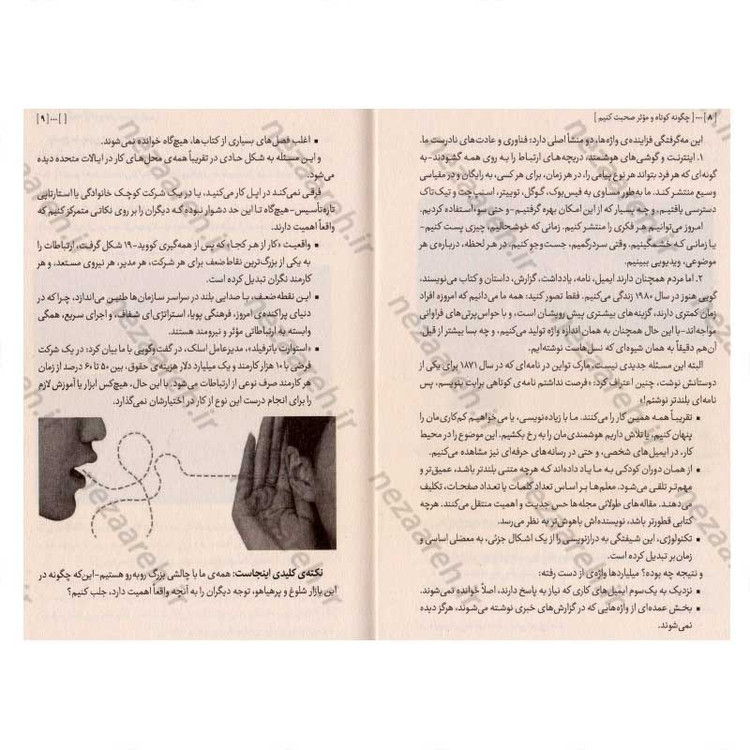 [ ۸ ]...[ چگونه کوتاه و مؤثر صحبت کنیم ]
این مه‌گرفتگی فزاینده‌ی واژه‌ها، دو منشأ اصلی دارد: فناوری و عادت‌های نادرست ما.
۱. اینترنت و گوشی‌های هوشمند، دریچه‌های ارتباط را به روی همه گشودند-به
گونه‌ای که هر فرد بتواند هر نوع پیامی را، در هر زمان، برای هر کسی، به رایگان و در مقیاسی
وسیع منتشر کند. ما به‌طور مساوی به فیس‌بوک، گوگل، توییتر، اسنپ‌چت و تیک‌تاک
دسترسی یافتیم، و چه بسیار که از این امکان بهره گرفتیم-و حتی سوءاستفاده کردیم.
امروز می‌توانیم هر فکری را منتشر کنیم. زمانی که خوشحالیم، چیزی پست کنیم-
یا زمانی که خشمگینیم. وقتی سردرگمیم، جست‌وجو کنیم. در هر لحظه، درباره‌ی هر
موضوعی، ویدیویی ببینیم.
۲. اما مردم همچنان دارند ایمیل، نامه، یادداشت، گزارش، داستان و کتاب می‌نویسند،
گویی هنوز در سال ۱۹۸۰ زندگی می‌کنیم. فقط تصور کنید: همه ما می‌دانیم که امروزه افراد
زمان کمتری دارند، گزینه‌های بیشتری پیش رویشان است، و با حواس‌پرتی‌های فراوانی
مواجه‌اند-با این حال همچنان به همان اندازه واژه تولید می‌کنیم، و چه بسا بیشتر از قبل،
آن‌هم دقیقاً به همان شیوه‌ای که نسل‌هاست نوشته‌ایم.
البته این مسئله جدیدی نیست. مارک تواین در نامه‌ای که در سال ۱۸۷۱ برای یکی از
دوستانش نوشت، چنین اعتراف کرد: «فرصت نداشتم نامه‌ی کوتاهی برایت بنویسم، پس
نامه‌ای بلندتر نوشتم!»
▪ تقریباً همه همین کار را می‌کنند. ما با زیاده‌نویسی، یا می‌خواهیم کم‌کاری‌مان را
پنهان کنیم، یا تلاش داریم هوشمندی‌مان را به رخ بکشیم. این موضوع را در محیط
کار، در ایمیل‌های شخصی، و حتی در رسانه‌های حرفه‌ای نیز مشاهده می‌کنیم.
▪ از همان دوران کودکی به ما یاد داده‌اند که هرچه متنی بلندتر باشد، عمیق‌تر و
مهم‌تر تلقی می‌شود. معلم‌ها بر اساس تعداد کلمات یا تعداد صفحات، تکلیف
می‌دهند. مقاله‌های طولانی مجله‌ها حس جدیت و اهمیت منتقل می‌کنند. هرچه
کتابی قطورتر باشد، نویسنده‌اش باهوش‌تر به نظر می‌رسد.
▪ تکنولوژی، این شیفتگی به درازنویسی را از یک اشکال جزئی، به معضلی اساسی و
زمان‌بر تبدیل کرده است.
و نتیجه چه بوده؟ میلیاردها واژه‌ی از دست رفته:
▪ نزدیک به یک‌سوم ایمیل‌های کاری که نیاز به پاسخ دارند، اصلاً خوانده نمی‌شوند.
▪ بخش عمده‌ای از واژه‌هایی که در گزارش‌های خبری نوشته می‌شوند، هرگز دیده
نمی‌شوند.
[ ]...[ ۹ ]
▪ اغلب فصل‌های بسیاری از کتاب‌ها، هیچ‌گاه خوانده نمی‌شوند.
و این مسئله به شکل حادی در تقریباً همه‌ی محل‌های کار در ایالات متحده دیده
می‌شود.
فرقی نمی‌کند در اپل کار می‌کنید، یا در یک شرکت کوچک خانوادگی یا استارتاپی
تازه‌تأسیس-هیچ‌گاه تا این حد دشوار نبوده که دیگران را بر روی نکاتی متمرکز کنیم که
واقعاً اهمیت دارند.
▪ واقعیت «کار از هر کجا» که پس از همه‌گیری کووید-۱۹ شکل گرفت، ارتباطات را
به یکی از بزرگ‌ترین نقاط ضعف برای هر شرکت، هر مدیر، هر نیروی مستعد، و هر
کارمند نگران تبدیل کرده است.
▪ این نقطه‌ضعف با صدایی بلند در سراسر سازمان‌ها طنین می‌اندازد، چرا که در
دنیای پراکنده‌ی امروز، فرهنگی پویا، استراتژی‌ای شفاف، و اجرای سریع، همگی
وابسته به ارتباطاتی مؤثر و نیرومند هستند.
▪ «استوارت باترفیلد»، مدیرعامل اسلک، در گفت‌وگویی با ما بیان کرد: در یک شرکت
فرضی با ۱۰ هزار کارمند و یک میلیارد دلار هزینه‌ی حقوق، بین ۵۰ تا ۶۰ درصد از زمان
هر کارمند صرف نوعی از ارتباطات می‌شود. با این حال، هیچ‌کس ابزار یا آموزش لازم
را برای انجام درست این نوع از کار در اختیارشان نمی‌گذارد.
نکته‌ی کلیدی اینجاست: همه‌ی ما با چالشی بزرگ روبه‌رو هستیم-این‌که چگونه در
این بازار شلوغ و پرهیاهو، توجه دیگران را به آنچه واقعاً اهمیت دارد، جلب کنیم؟
nezaareh.ir